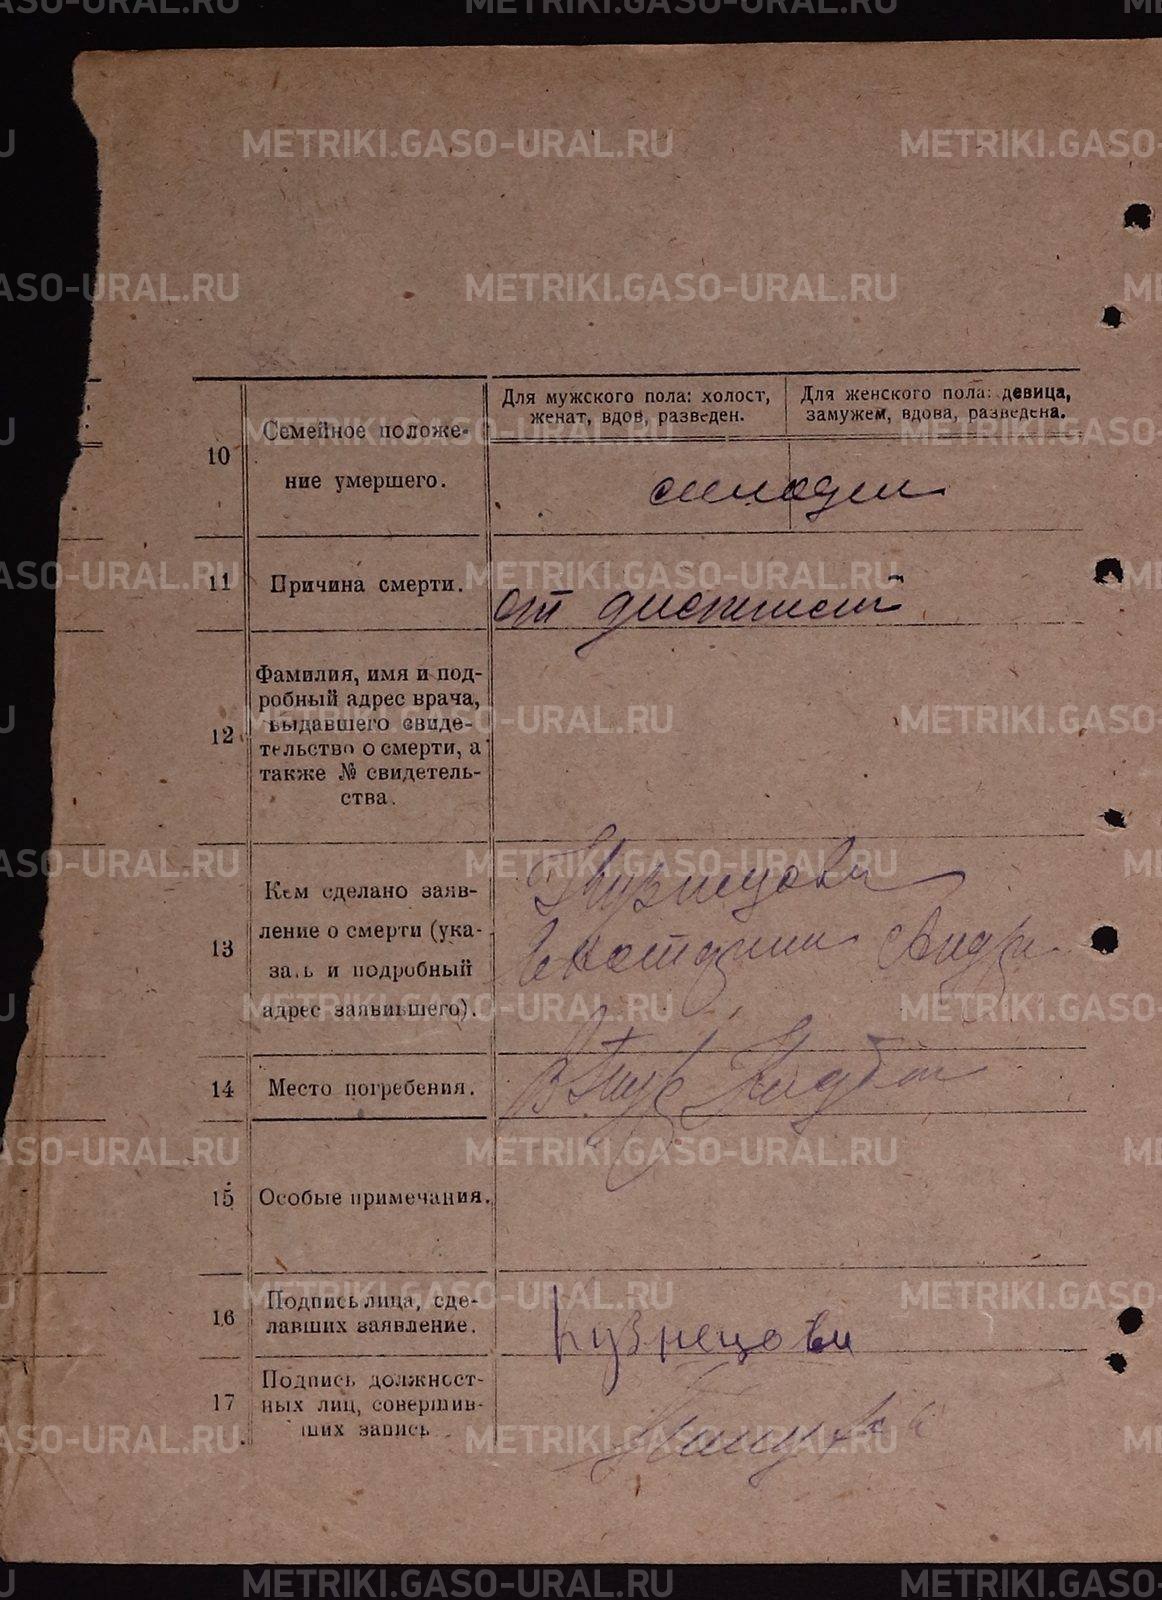 Для мужского пола: холост,
женат, вдов, разведен.
Для женского пола: девица,
замужем, вдова, разведена.
10
Семейное положе-
ние умершего.
11
Причина смерти.
от
12
Фамилия, имя и под-
робный адрес врача,
выдавшего свиде-
тельство о смерти, а
также № свидетель-
ства.
13
Кем сделано заяв-
ление о смерти (ука-
зать и подробный
адрес заявившего).
Кузнецова
14
Место погребения.
15
Особые примечания.
16
Подпись лица, сде-
лавших заявление.
Кузнецова
17
Подпись должност-
ных лиц, совершив-
ших запись
METRIKI.GASO-URAL.RU